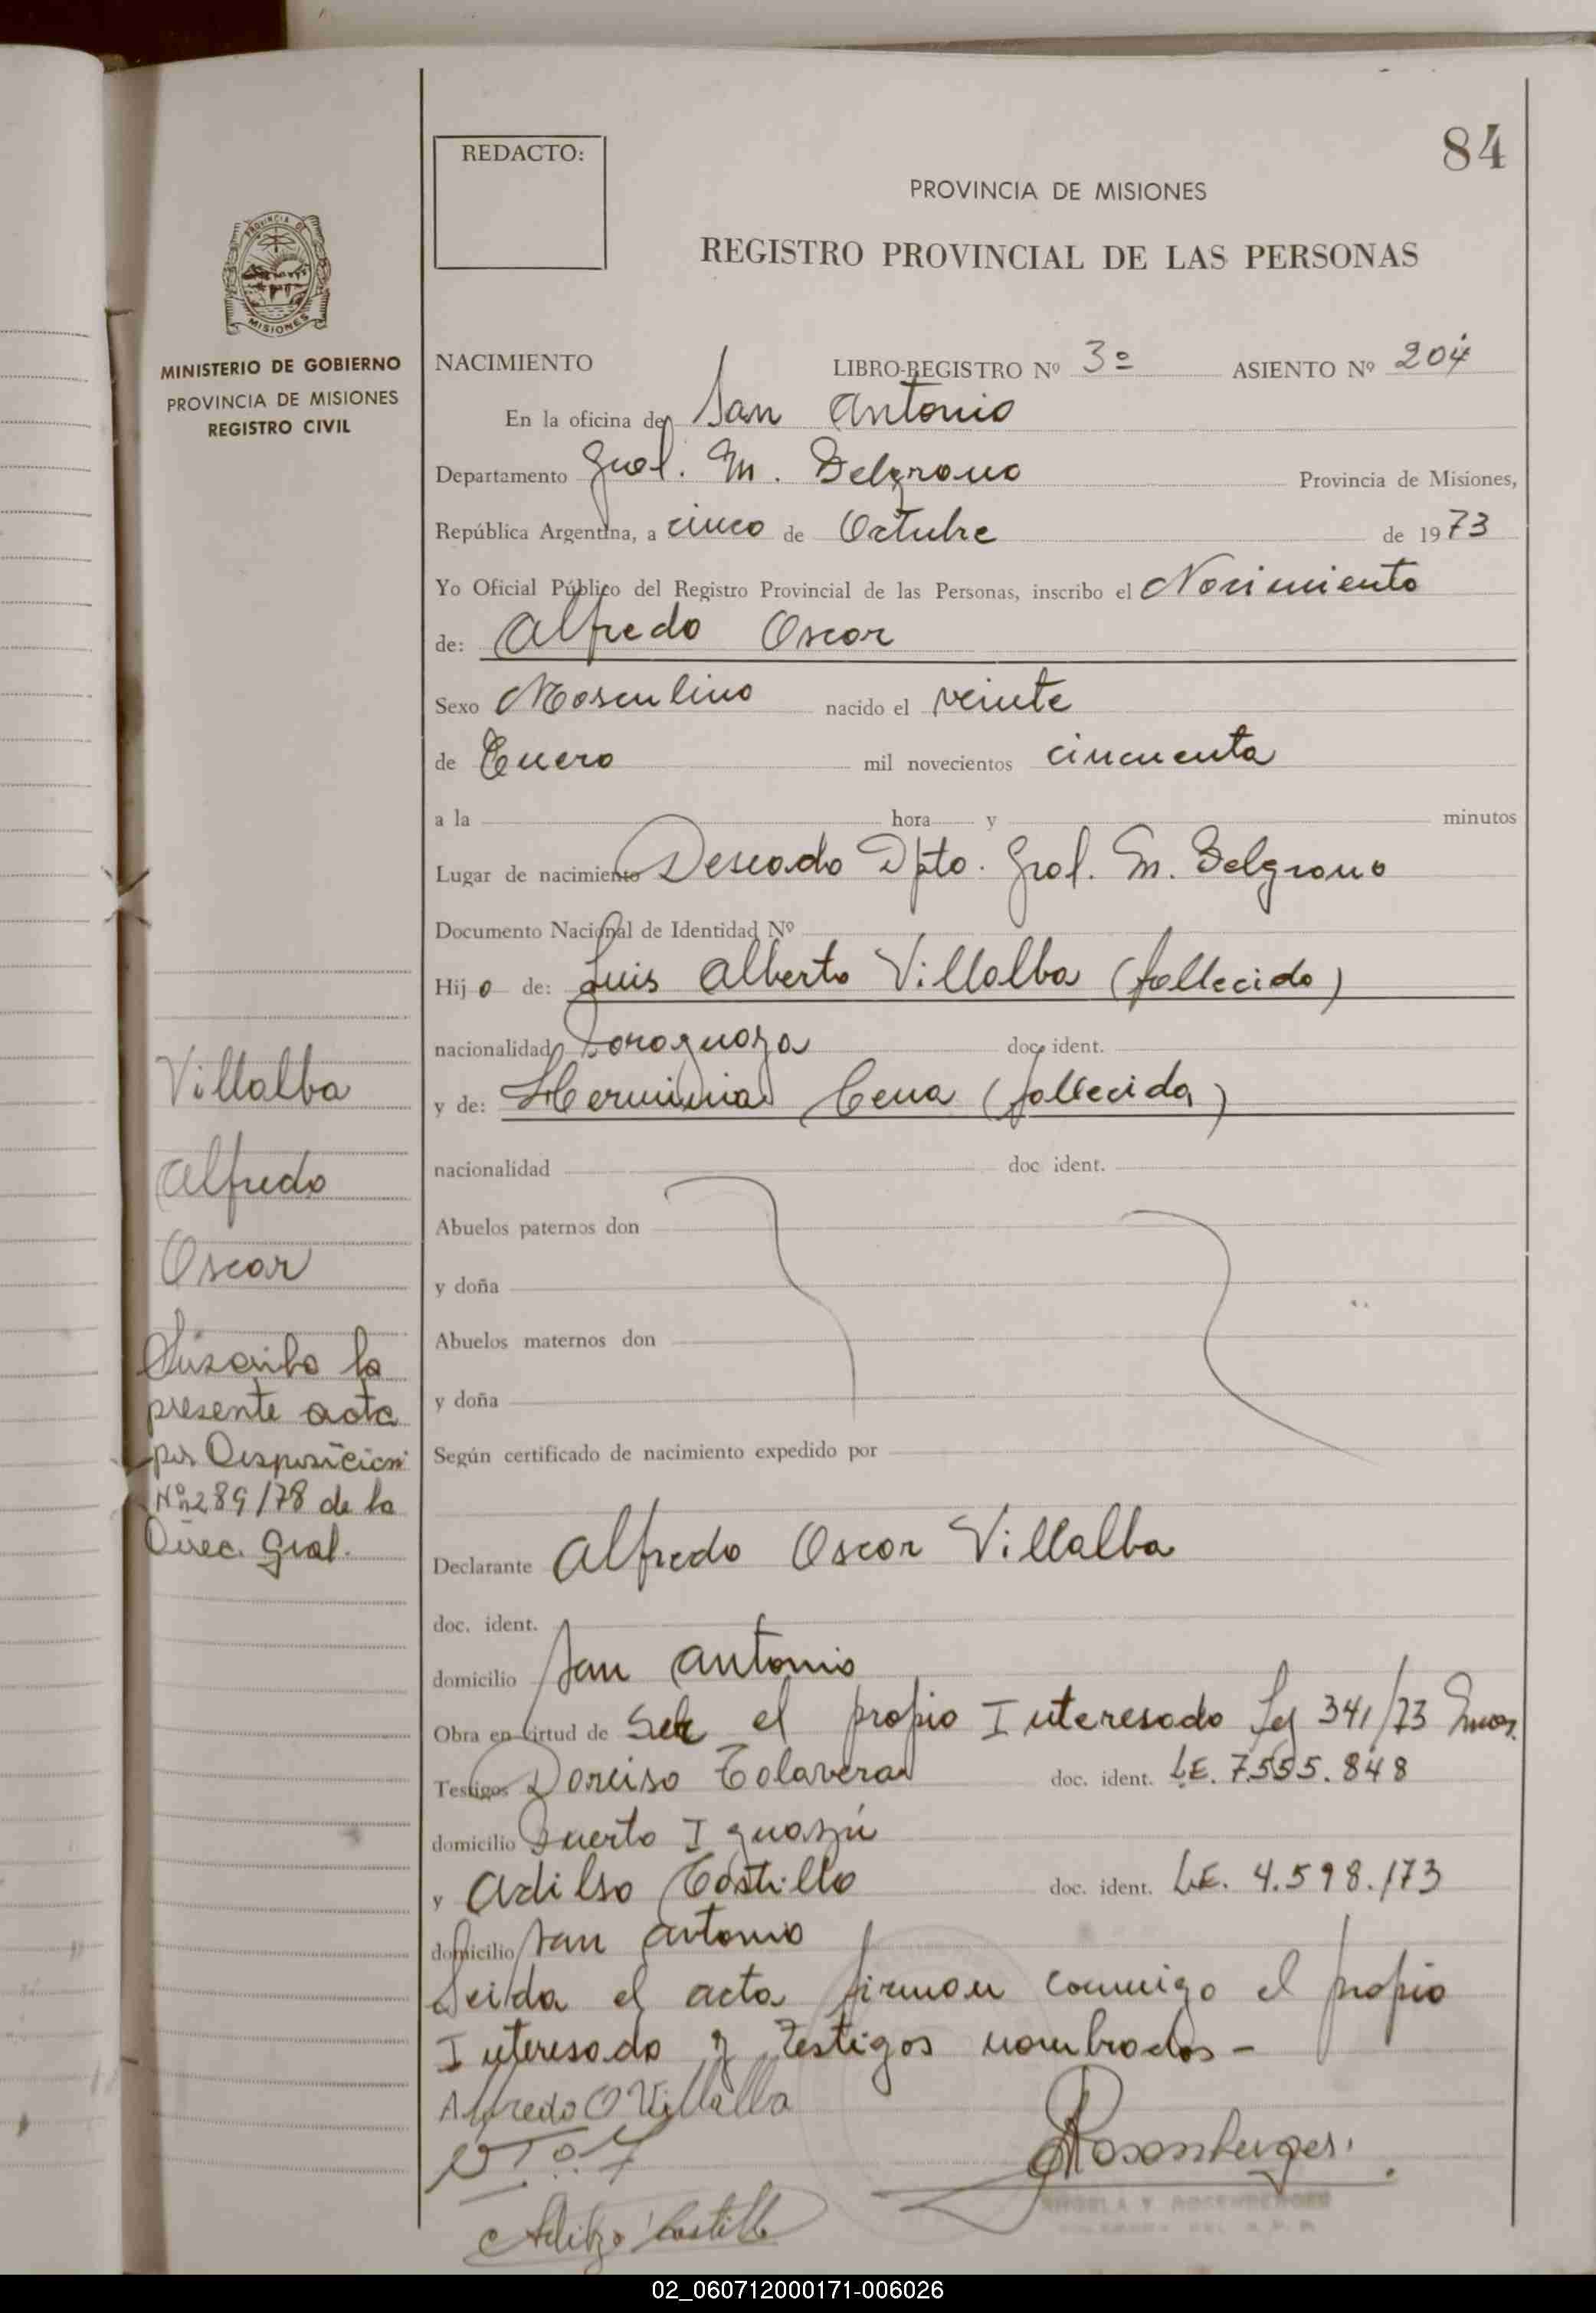 84
REDACTO:
PROVINCIA DE MISIONES
REGISTRO PROVINCIAL DE LAS PERSONAS
PROVINCIA DE
MISIONES
MINISTERIO DE GOBIERNO
PROVINCIA DE MISIONES
REGISTRO CIVIL
NACIMIENTO LIBRO-REGISTRO Nº 3º ASIENTO Nº 204
En la oficina de San Antonio
Departamento Gral. M. Belgrano Provincia de Misiones,
República Argentina, a cinco de Octubre de 1973
Yo Oficial Público del Registro Provincial de las Personas, inscribo el Nacimiento
de: Alfredo Oscar
Sexo Masculino nacido el veinte
de Enero mil novecientos cincuenta
a la hora y minutos
Lugar de nacimiento Deseado Dpto. Gral. M. Belgrano
Documento Nacional de Identidad Nº
Hijo de: Luis Alberto Villalba (fallecido)
nacionalidad Paraguaya doc. ident.
y de: Herminia Cena (fallecida)
nacionalidad doc ident.
Abuelos paternos don
y doña
Abuelos maternos don
y doña
Según certificado de nacimiento expedido por
Declarante Alfredo Oscar Villalba
doc. ident.
domicilio San Antonio
Obra en virtud de Ser el propio Interesado Ley 341/73
Testigos Talavera doc. ident. L.E. 7.555.848
domicilio Puerto Iguazú
y Adilso Costillo doc. ident. L.E. 4.598.173
domicilio San Antonio
Leida el acta firman conmigo el propio
Interesado y testigos nombrados -
Alfredo O Villalba
Rosenberger
ANGELA Y ROSENBERGER
Castillo
Villalba
Alfredo
Oscar
Suscribo la
presente acta
por Disposición
Nº 289/78 de la
Direc. Gral.
02_060712000171-006026